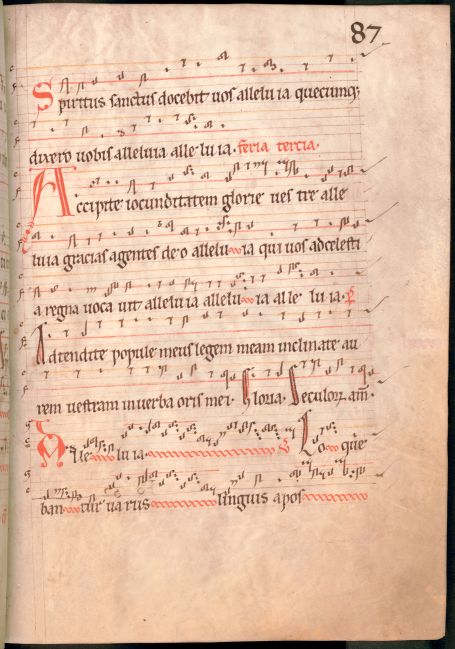 87
Spiritus sanctus docebit uos alleluia quecumq;
dixero uobis alleluia alleluia. feria tercia.
Accipite iocunditatem glorie uestre alle
luia gracias agentes deo alleluia qui uos ad celesti
a regna uocauit alleluia alleluia alleluia. P
Adtendite popule meus legem meam inclinate au
rem uestram in uerba oris mei. Gloria. Seculorum am.
Alleluia Loque
bantur uariis linguis apos